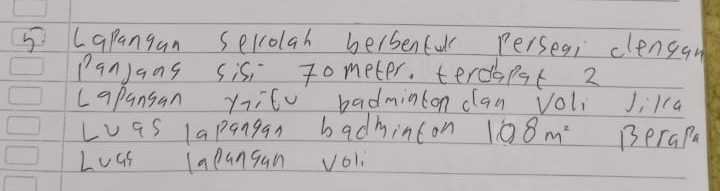 5) Lapangan sekolah berbentuk persegi dengan
Panjang sisi 70 meter. terdapat 2
Lapangan yaitu badminton dan voli Jika
Luas lapangan badminton 108 m² Berapa
Luas lapangan voli